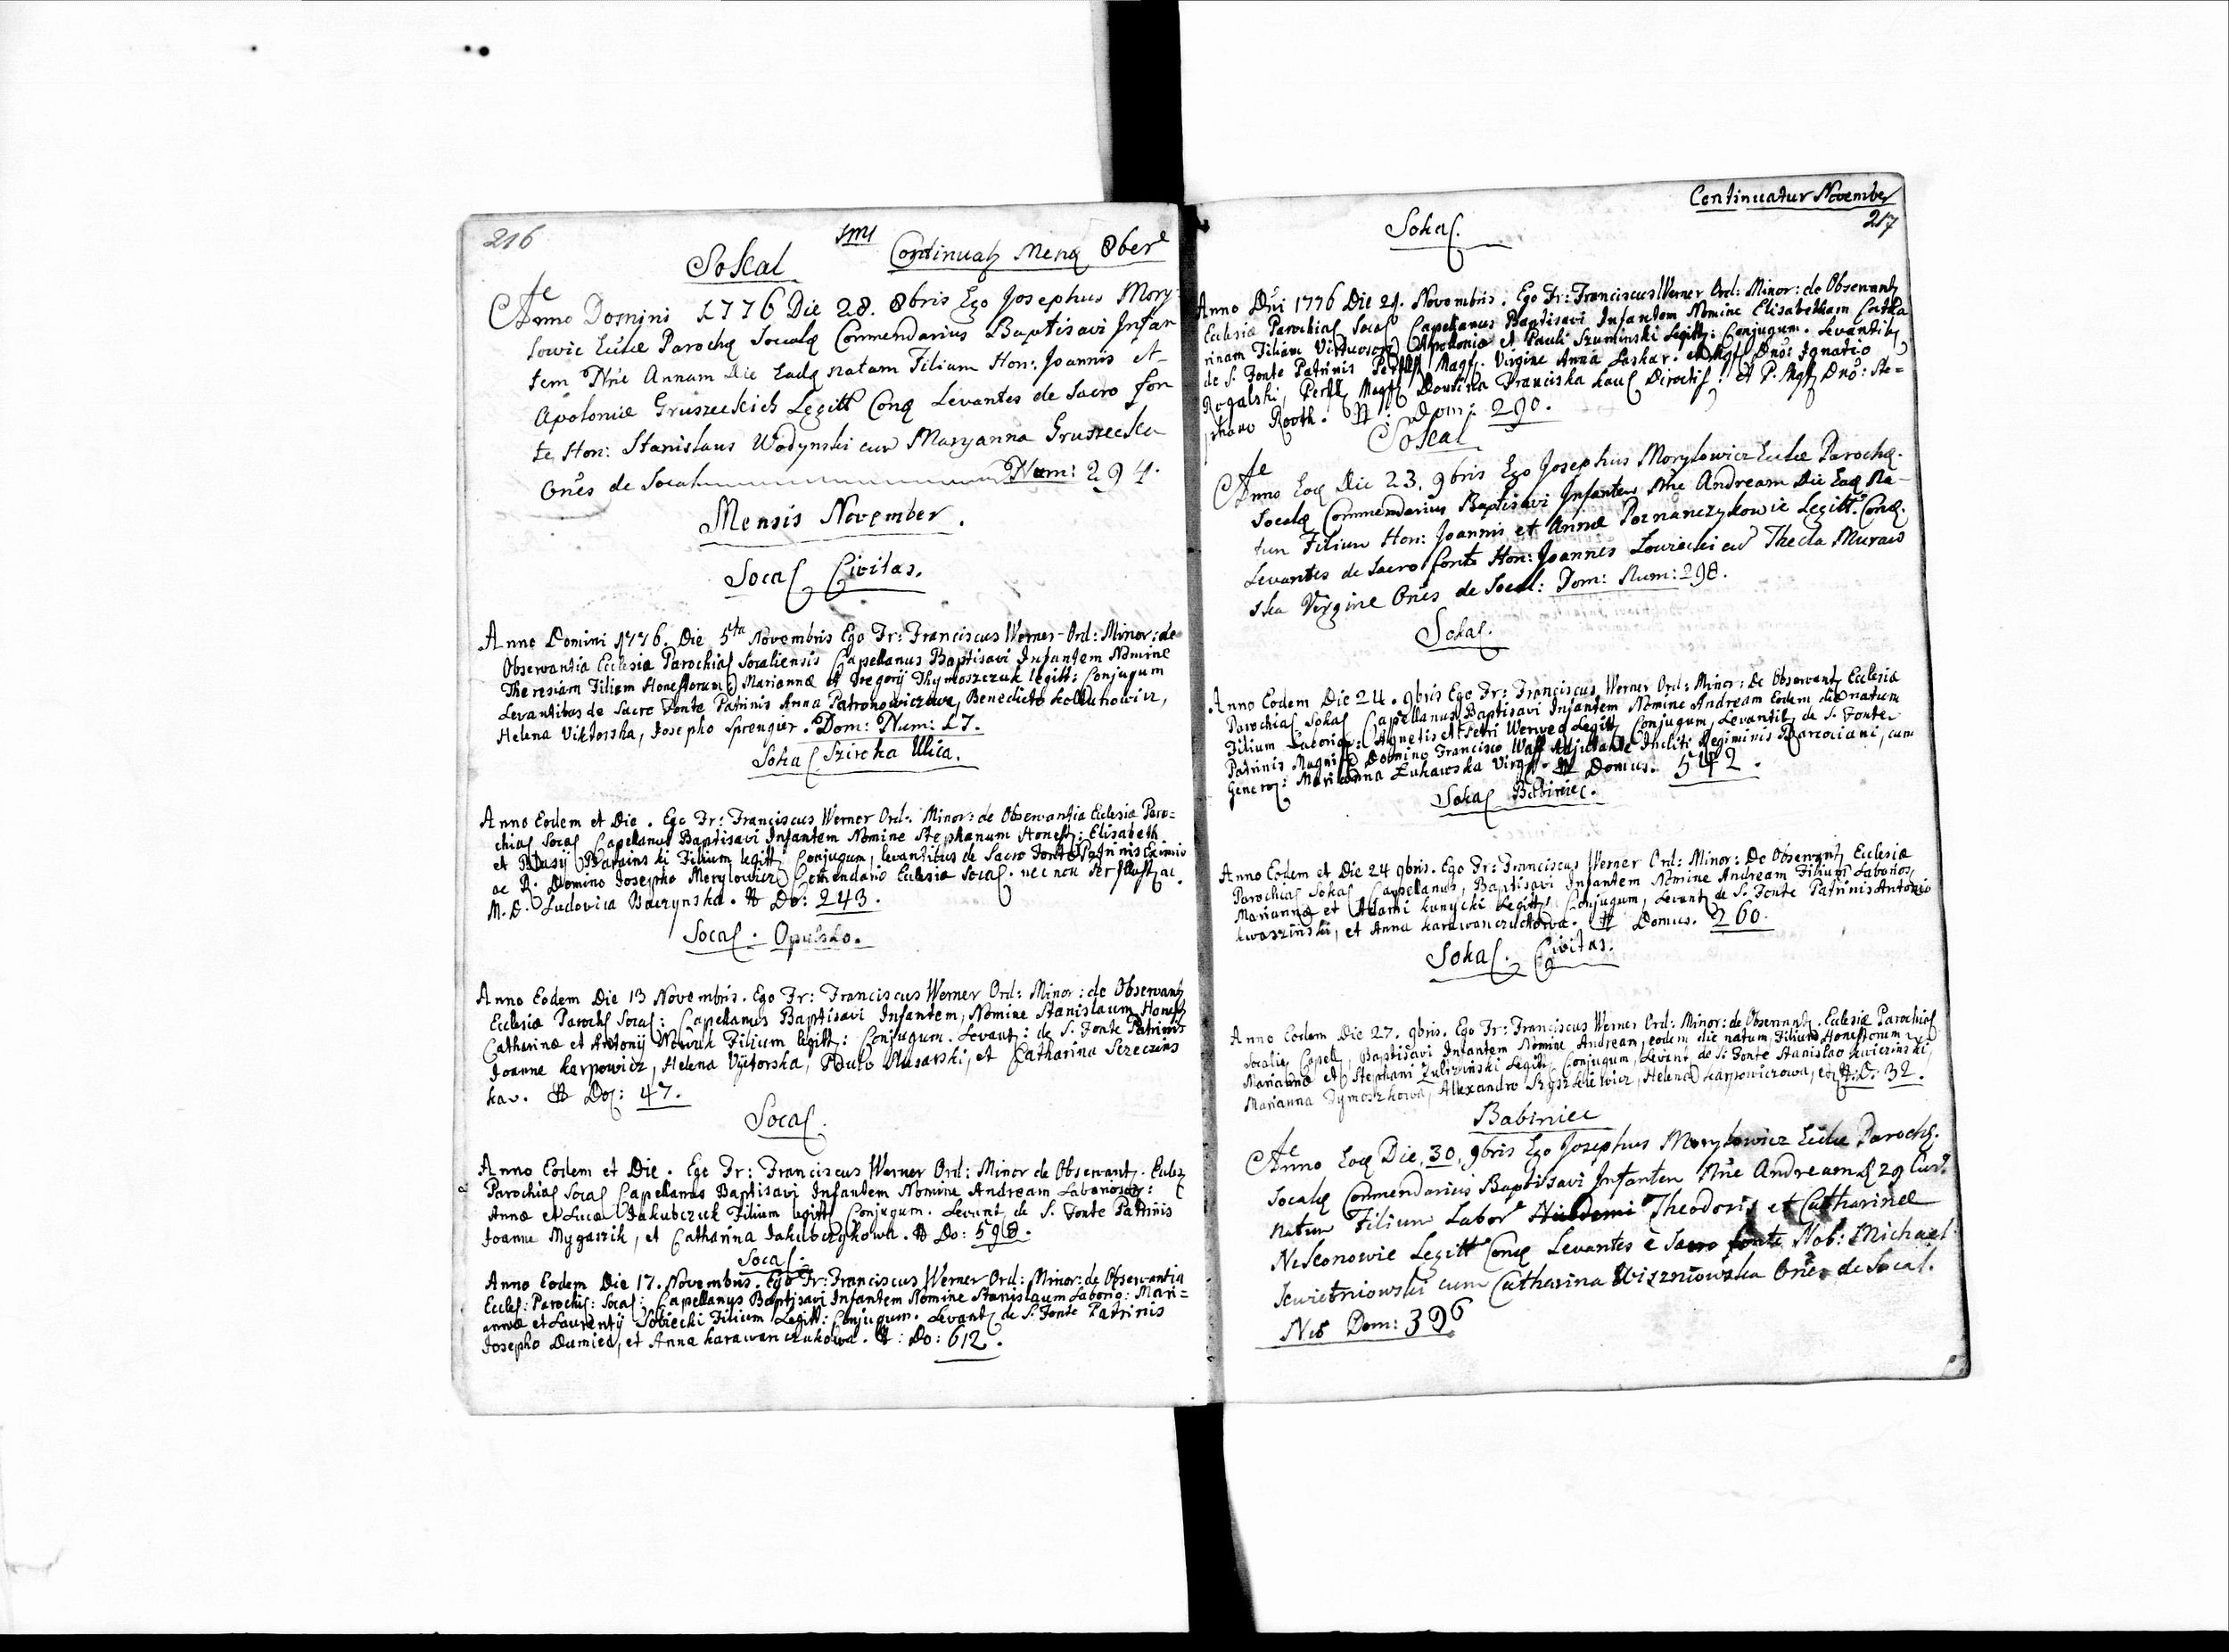 216
Continuat Mens 8bris
Sokal
Anno Domini 1776 Die 28. 8bris Ego Josephus Mory
lowic Eccl͞ae Paroch Socal Commendarius Baptisavi Infan
tem N͞ne Annam Die Ead natam Filiam Hon: Joannis et
Apoloniæ Gruszeckich Legitt Conj Levantes de Sacro fon
te Hon: Stanislaus Wodynski cum Maryanna Gruszecka
On͞es de Socal Num: 294.
Mensis November.
Socal Civitas.
Anno Domini 1776. Die 5ta Novembris Ego Fr: Franciscus Werner Ord: Minor: de
Observantia Ecclesiæ Parochial Socaliensis Capellanus Baptisavi Infantem Nomine
Theresiam Filiam Honestorum Mariannæ et Gregorij Thymoszczuk legitt: Conjugum
Levantibus de Sacro Fonte Patrinis Anna Patronowiczowa, Benedicto
Helena Viktorska, Josepho Sprengier. Dom: Num: 17.
Sokal Sziroka Ulica.
Anno Eodem et Die. Ego Fr: Franciscus Werner Ord: Minor: de Observantia Ecclesiæ Paro=
chial Socal Capellanus Baptisavi Infantem Nomine Stephanum Honest: Elisabeth
et Filium legitt Conjugum, levantibus de Sacro Fonte Patrinis Eximio
ac R. Domino Josepho Morylowicz Comendario Ecclesiæ Socal. nec non Per Illust ac
M. D. Ludovica Baczynska. N Do: 243.
Socal. Opulsko.
Anno Eodem Die 13 Novembris. Ego Fr: Franciscus Werner Ord: Minor: de Observant
Ecclesiæ Paroch Socal: Capellanus Baptisavi Infantem, Nomine Stanislaum Honest
Catharinæ et Antonij Nowak Filium legitt: Conjugum. Levant: de S. Fonte Patrinis
Joanne Karpowicz, Helena Vijtorska, Paulo Slusarski, et Catharina Szreczins
ka. N Do: 47.
Socal.
Anno Eodem et Die. Ego Fr: Franciscus Werner Ord: Minor de Observant. Eccles
Parochial Socal Capellanus Baptisavi Infantem Nomine Andream Laborioso:
Annæ et Lucæ Jakubczuk Filium legitt Conjugum. Levant de S. Fonte Patrinis
Joanne Mygaszik, et Catharina Jakubczykowa. N Do: 598.
Socal.
Anno Eodem Die 17. Novembris. Ego Fr: Franciscus Werner Ord: Minor: de Observantia
Eccles: Parochi: Socal: Capellanus Baptisavi Infantem Nomine Stanislaum Laborio: Mari=
annæ et Laurentij Sobiecki Filium Legitt: Conjugum. Levant de S. Fonte Patrinis
Josepho Dumied, et Anna Karawanczukowa. N: Do: 612.
Continuatur November
217
Sokal.
Anno D͞ni 1776 Die 21. Novembris. Ego Fr: Franciscus Werner Ord: Minor: de Observant
Ecclesiæ Parochial Socal Capellanus Baptisavi Infantem Nomine Elisabetham Catha
rinam Filiam Virtuosor Apolloniæ et Pauli Szuminski Legitt: Conjugum. Levantib
de S. Fonte Patrinis Perill Magf: Virgine Anna Laskar. et Mgf Dno: Ignatio
Rogalski, Perill Magf Domina Franciska et P. Mgf Dno: Ste=
phano Rooth. N: Dom: 290.
Sokal
Anno Eod Die 23. 9bris Ego Josephus Morylowicz Eccl͞æ Paroch.
Socal Commendarius Baptisavi Infantem N͞ne Andream Die Ead Na-
tum Filium Hon: Joannis et Annæ Poznanczykowie Legitt. Conj.
Levantes de Sacro fonte Hon: Joannes Lowiecki cum Thecla Muraw
ska Virgine On͞es de Socal: Dom: Num: 298.
Sokal.
Anno Eodem Die 24. 9bris Ego Fr: Franciscus Werner Ord: Minor: De Observant Ecclesiæ
Parochial Sokal Capellanus Baptisavi Infantem Nomine Andream Eodem die natum
Filium Laborio: Agnetis et Petri Legitt Conjugum, Levantib de S. Fonte
Patrinis Magnif Domino Francisco Waff Adjutante Incliti Regiminis cum
Generos: Marianna Zukawska Virg. N Domus. 542.
Sokal Babiniec.
Anno Eodem et Die 24 9bris. Ego Fr: Franciscus Werner Ord: Minor: De Observant Ecclesiæ
Parochial Sokal Capellanus, Baptisavi Infantem Nomine Andream Filium Laborios,
Mariannæ et Adami Kunycki Legitt: Conjugum, Levant de S. Fonte Patrinis Antonio
Kwaszinski, et Anna Karawanczuckowa. N Domus. 260.
Sokal. Civitas.
Anno Eodem Die 27. 9bris. Ego Fr: Franciscus Werner Ord: Minor: de Observant. Ecclesiæ Parochial
Socalie, Capell, Baptisavi Infantem Nomine Andream, eodem die natum, Filium Honestorum
Mariannæ et Stephani Zulizinski Legitt Conjugum, Levant, de S. Fonte Stanislao Kwiczinski,
Marianna Tymoszkowa, Alexandro Ryszkiewicz, Helena Karpowiczowa, et N: D: 32.
Babiniec
Anno Eod Die 30, 9bris Ego Josephus Morylowicz Eccl͞æ Paroch.
Socal Commendarius Baptisavi Infantem N͞ne Andream d 29 Cur.
natum Filium Labor Theodori et Catharinæ
Neskonowie Legitt Conj Levantes e Sacro fonte Nob: Michael
Kwietniowski cum Catharina Wiszniowska On͞es de Socal.
Nro Dom: 396